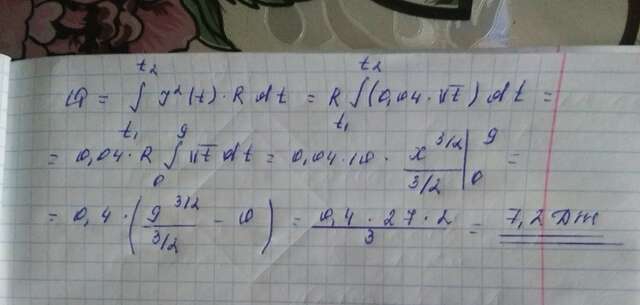 Q = ∫_{t₁}^{t₂} I²(t) · R dt = R ∫_{t₁}^{t₂} (0,04 · √t) dt =
= 0,04 · R ∫_0^9 √t dt = 0,04 · 10 · x^{3/2}/(3/2) |_0^9 =
= 0,4 · (9^{3/2}/(3/2) - 0) = (0,4 · 27 · 2)/3 = 7,2 Дж